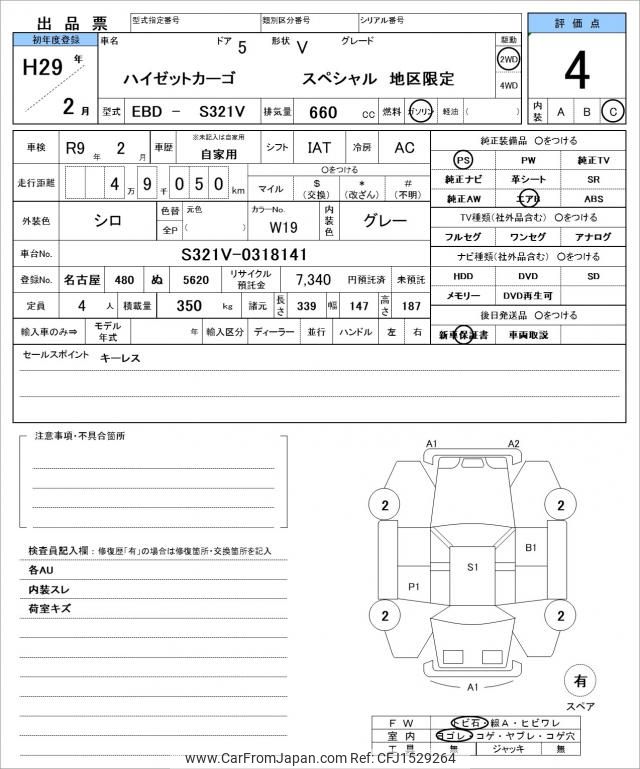 出品票
型式指定番号
類別区分番号
シリアル番号
評価点
初年度登録
車名
ドア 5
形状 V
グレード
駆動
H29 年
2 月
ハイゼットカーゴ
スペシャル 地区限定
2WD
4WD
4
型式 EBD - S321V
排気量 660 cc
燃料 ガソリン 軽油 ( )
内装 A B C
車検 R9 年 2 月
車歴
※未記入は自家用
自家用
シフト IAT
冷房 AC
純正装備品 ○をつける
PS PW 純正TV
走行距離 4 万 9 千 0 5 0 km
○をつける
マイル
$ (交換)
* (改ざん)
# (不明)
純正ナビ 革シート SR
純正AW エアB ABS
外装色 シロ
色替
全P
元色
( )
カラーNo.
W19
内装色 グレー
TV種類(社外品含む) ○をつける
フルセグ ワンセグ アナログ
車台No. S321V-0318141
ナビ種類(社外品含む) ○をつける
HDD DVD SD
登録No. 名古屋 480 ぬ 5620
リサイクル預託金 7,340 円預託済 未預託
メモリー DVD再生可
定員 4 人
積載量 350 kg
諸元 長さ 339 幅 147 高さ 187
後日発送品 ○をつける
輸入車のみ⇒ モデル年式 年 輸入区分 ディーラー 並行 ハンドル 左 右
新車保証書 車両取説
セールスポイント キーレス
注意事項・不具合箇所
検査員記入欄：修復歴「有」の場合は修復箇所・交換箇所を記入
各AU
内装スレ
荷室キズ
A1 A2
2 2
B1
S1
P1
2 2
A1
有
スペア
FW トビ石・線A・ヒビワレ
室内 ヨゴレ・コゲ・ヤブレ・コゲ穴
工具 無 ジャッキ 無
www.CarFromJapan.com Ref: CFJ1529264